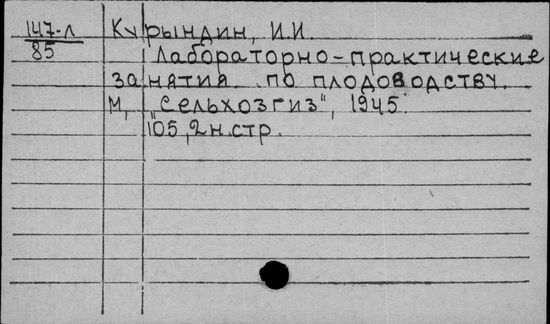 147-л Курындин, И.И.
85 Лабораторно-практические
занятия по плодоводству.
М, "Сельхозгиз", 1945.
105, 2 н. стр.